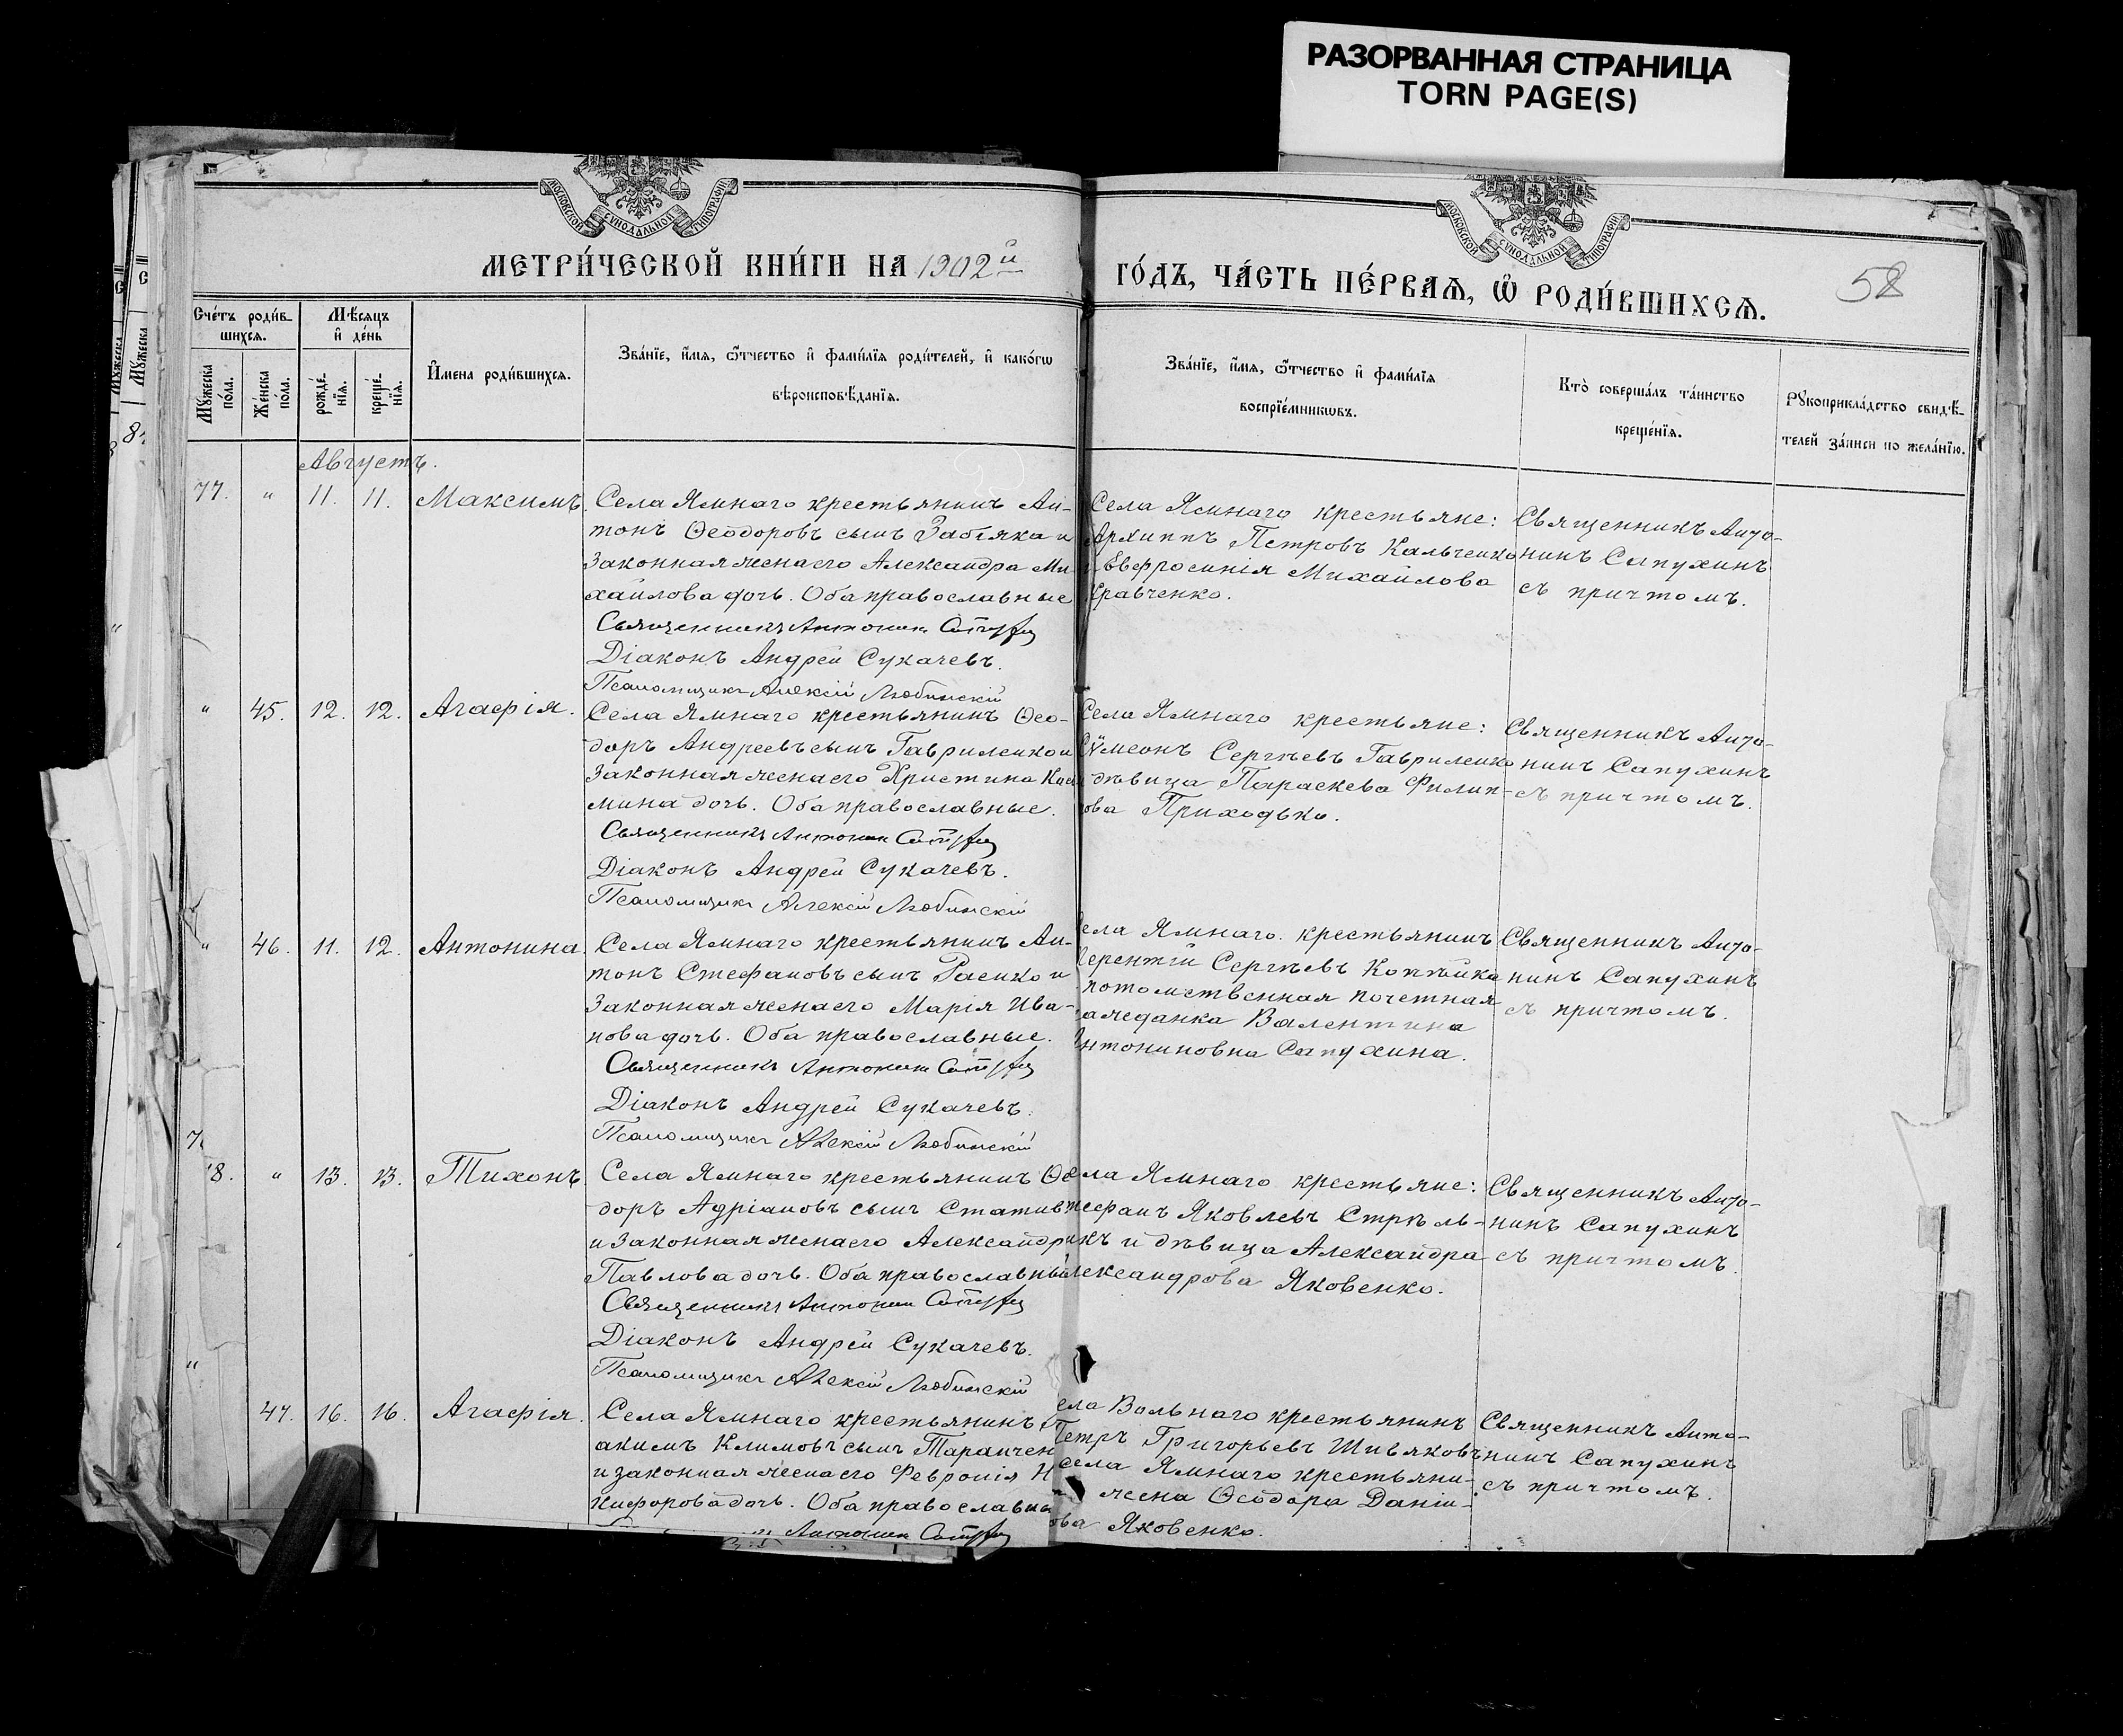 РАЗОРВАННАЯ СТРАНИЦА
TORN PAGE(S)
МОСКОВСКОЙ СУНОДАЛЬНОЙ ТИПОГРАФІИ
МОСКОВСКОЙ СУНОДАЛЬНОЙ ТИПОГРАФІИ
МЕТРИ́ЧЕСКОЙ КНИ́ГИ НА 1902й
ГО́ДЪ, ЧА́СТЬ ПЕ́РВАѦ, Ѽ РОДИ́ВШИХСѦ.
58
Сче́тъ роди́в-
шихся.
Мѣсяцъ
и҆ де́нь
Мꙋ́жеска по́ла.
Же́нска по́ла.
рожде́-
нїя.
креще́-
нїя.
И҆мена роди́вшихся.
Зва́нїе, и҆́мя, ѻ҆́тчество и҆ фами́лїя роди́телей, и҆ како́гѡ
вѣроисповѣ́данїя.
Зва́нїе, и҆́мя, ѻ҆́тчество и҆ фами́лїя
воспрїе́мникѡвъ.
Кто̀ соверша́лъ та́инство
креще́нїя.
Рꙋкоприкла́дство свидѣ́-
телей за́писи по жела́нїю.
Августъ.
77. " 11. 11. Максимъ.
Села Ямнаго крестьянинъ Ан-
тонъ Ѳеодоровъ сынъ Забіяка и
законная жена его Александра Ми-
хайлова дочь. Оба православные
Священникъ Антонин
Діаконъ Андрей Сукачевъ.
Псаломщикъ Алексій Любинскій
Села Ямнаго крестьяне:
Архиппъ Петровъ Кальченко
и Евфросинія Михайлова
Кравченко.
Священникъ Анто-
нинъ Сапухинъ
съ причтомъ.
" 45. 12. 12. Агафія.
Села Ямнаго крестьянинъ Ѳео-
доръ Андреевъ сынъ Гавриленко и
законная жена его Христина
мина дочь. Оба православные.
Священникъ Антонин
Діаконъ Андрей Сукачевъ.
Псаломщикъ Алексій Любинскій
Села Ямнаго крестьяне:
Сѵмеонъ Сергѣевъ Гавриленко
и дѣвица Параскева Филип-
ова Приходько.
Священникъ Анто-
нинъ Сапухинъ
съ причтомъ.
" 46. 11. 12. Антонина.
Села Ямнаго крестьянинъ Ан-
тонъ Стефановъ сынъ Раенко и
законная жена его Марія Ива-
нова дочь. Оба православные.
Священникъ Антонин
Діаконъ Андрей Сукачевъ.
Псаломщикъ Алексій Любинскій
ела Ямнаго крестьянинъ
ерентій Сергѣевъ Копѣйка
потомственная почетная
ажданка Валентина
нтониновна Сапухина.
Священникъ Анто-
нинъ Сапухинъ
съ причтомъ.
7
8. " 13. 13. Тихонъ.
Села Ямнаго крестьянинъ Ѳе
доръ Адріановъ сынъ Статив
и законная жена его Александр
Павлова дочь. Оба православны
Священникъ Антонин
Діаконъ Андрей Сукачевъ.
Псаломщикъ Алексій Любинскій
ела Ямнаго крестьяне:
тефанъ Яковлевъ Стрѣль-
икъ и дѣвица Александра
лександрова Яковенко.
Священникъ Анто-
нинъ Сапухинъ
съ причтомъ.
"
47. 16. 16. Агафія.
Села Ямнаго крестьянинъ
акимъ Климовъ сынъ Таранчен
и законная жена его Февронія Н
кифорова дочь. Оба православны
Антонин
ела Вольнаго крестьянинъ
Петръ Григорьевъ Шивяковъ
села Ямнаго крестьяни-
жена Ѳеодора Даніи-
ова Яковенко.
Священникъ Анто-
нинъ Сапухинъ
съ причтомъ.